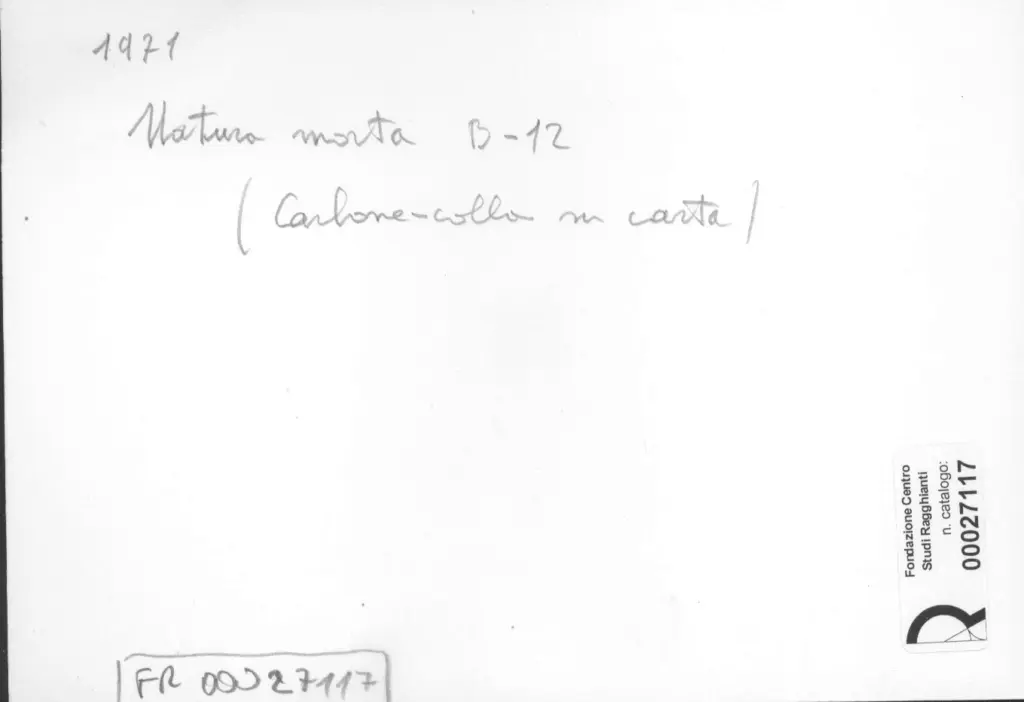 1971
Natura morta B-12
(Carbone-colla su carta)
Fondazione Centro
Studi Ragghianti
n. catalogo:
00027117
FR 00027117